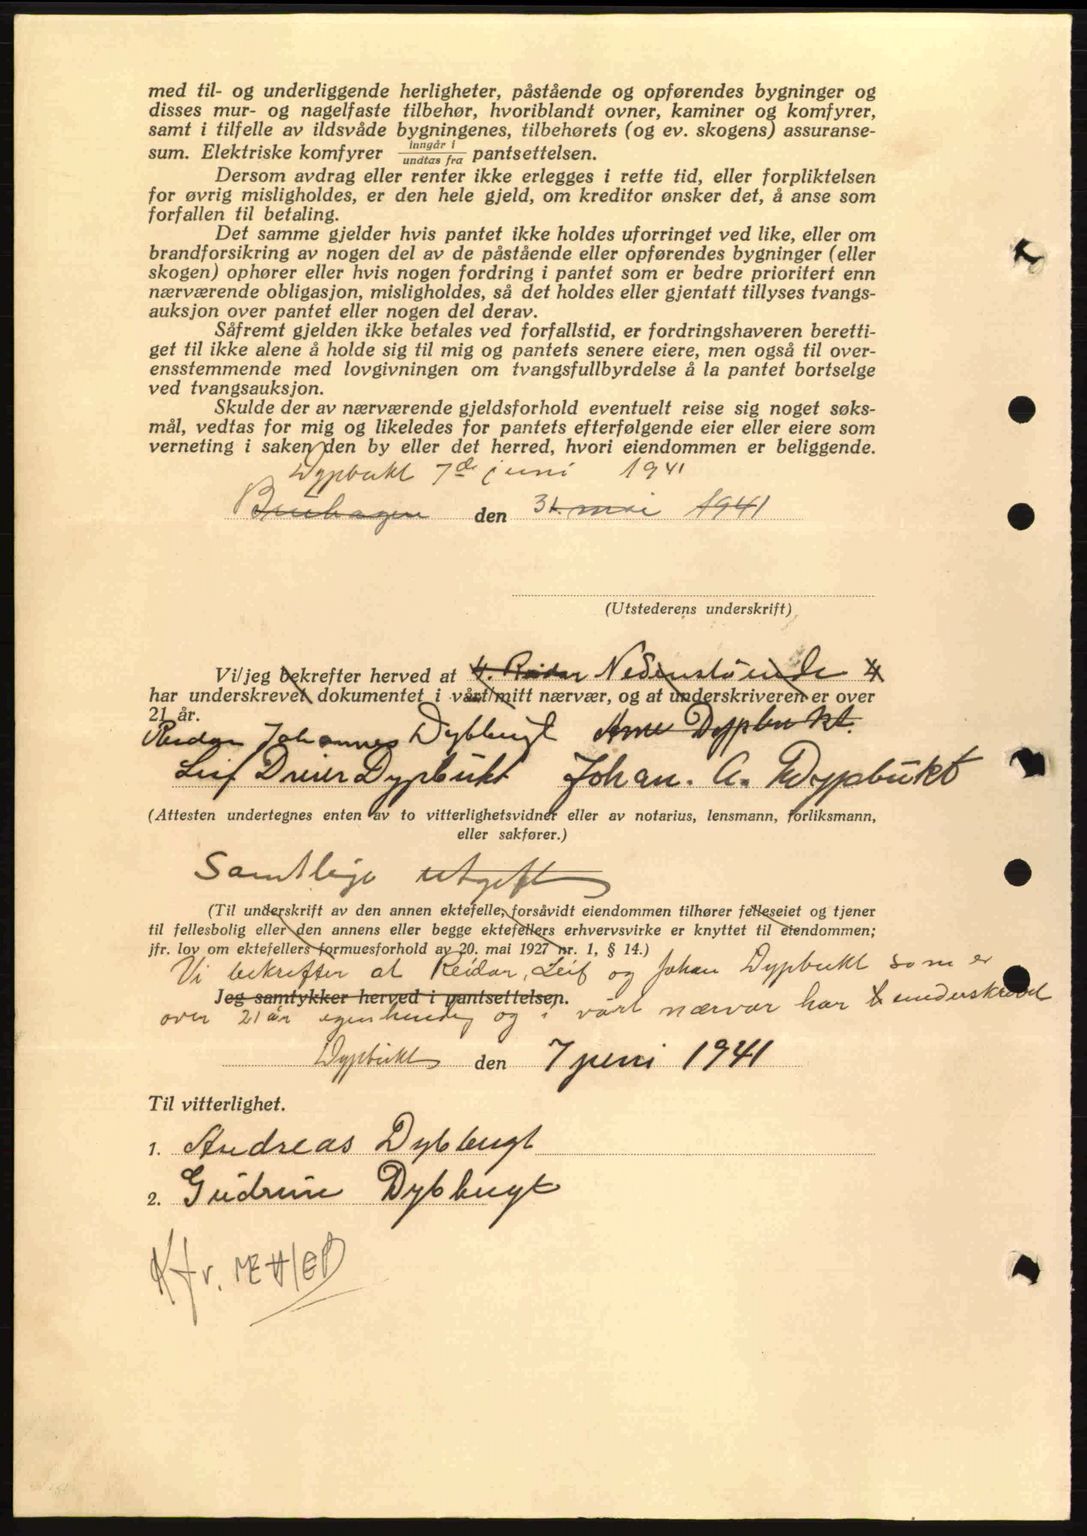 med til- og underliggende herligheter, påstående og opførendes bygninger og
disses mur- og nagelfaste tilbehør, hvoriblandt ovner, kaminer og komfyrer,
samt i tilfelle av ildsvåde bygningenes, tilbehørets (og ev. skogens) assuranse-
sum. Elektriske komfyrer inngår i / undtas fra pantsettelsen.
Dersom avdrag eller renter ikke erlegges i rette tid, eller forpliktelsen
for øvrig misligholdes, er den hele gjeld, om kreditor ønsker det, å anse som
forfallen til betaling.
Det samme gjelder hvis pantet ikke holdes uforringet ved like, eller om
brandforsikring av nogen del av de påstående eller opførendes bygninger (eller
skogen) ophører eller hvis nogen fordring i pantet som er bedre prioritert enn
nærværende obligasjon, misligholdes, så det holdes eller gjentatt tillyses tvangs-
auksjon over pantet eller nogen del derav.
Såfremt gjelden ikke betales ved forfallstid, er fordringshaveren beretti-
get til ikke alene å holde sig til mig og pantets senere eiere, men også til over-
ensstemmende med lovgivningen om tvangsfullbyrdelse å la pantet bortselge
ved tvangsauksjon.
Skulde der av nærværende gjeldsforhold eventuelt reise sig noget søks-
mål, vedtas for mig og likeledes for pantets efterfølgende eier eller eiere som
verneting i saken den by eller det herred, hvori eiendommen er beliggende.
Dypbukt 7de juni 1941
Bruhagen den 31. mai 1941
(Utstederens underskrift)
Vi/jeg bekrefter herved at Reidar Nedenstående
har underskrevet dokumentet i vårt/mitt nærvær, og at underskriveren er over
21 år.
Reidar Johannes Dybbugt Arne Dypbukt.
Leif Dreier Dypbukt Johan. A. Dypbukt
(Attesten undertegnes enten av to vitterlighetsvidner eller av notarius, lensmann, forliksmann,
eller sakfører.)
Samtlige utgift
(Til underskrift av den annen ektefelle, forsåvidt eiendommen tilhører felleseiet og tjener
til fellesbolig eller den annens eller begge ektefellers erhvervsvirke er knyttet til eiendommen;
jfr. lov om ektefellers formuesforhold av 20. mai 1927 nr. 1, § 14.)
Vi bekrefter at Reidar, Leif og Johan Dypbukt som er
Jeg samtykker herved i pantsettelsen.
over 21 år egenhendig og i vårt nærvær har underskrevet
Dypbukt den 7 juni 1941
Til vitterlighet.
1. Andreas Dybbugt
2. Gudrun Dybbugt